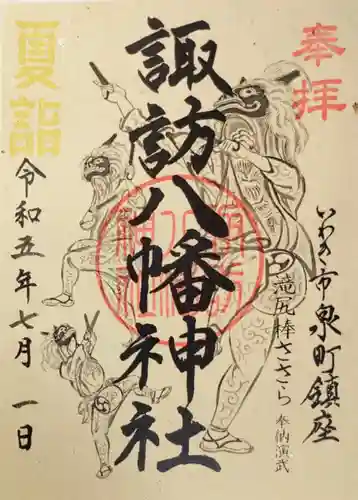 奉拝
いわき市泉町鎮座
滝尻棒ささら 奉納演武
諏訪八幡神社
夏詣
令和五年七月一日